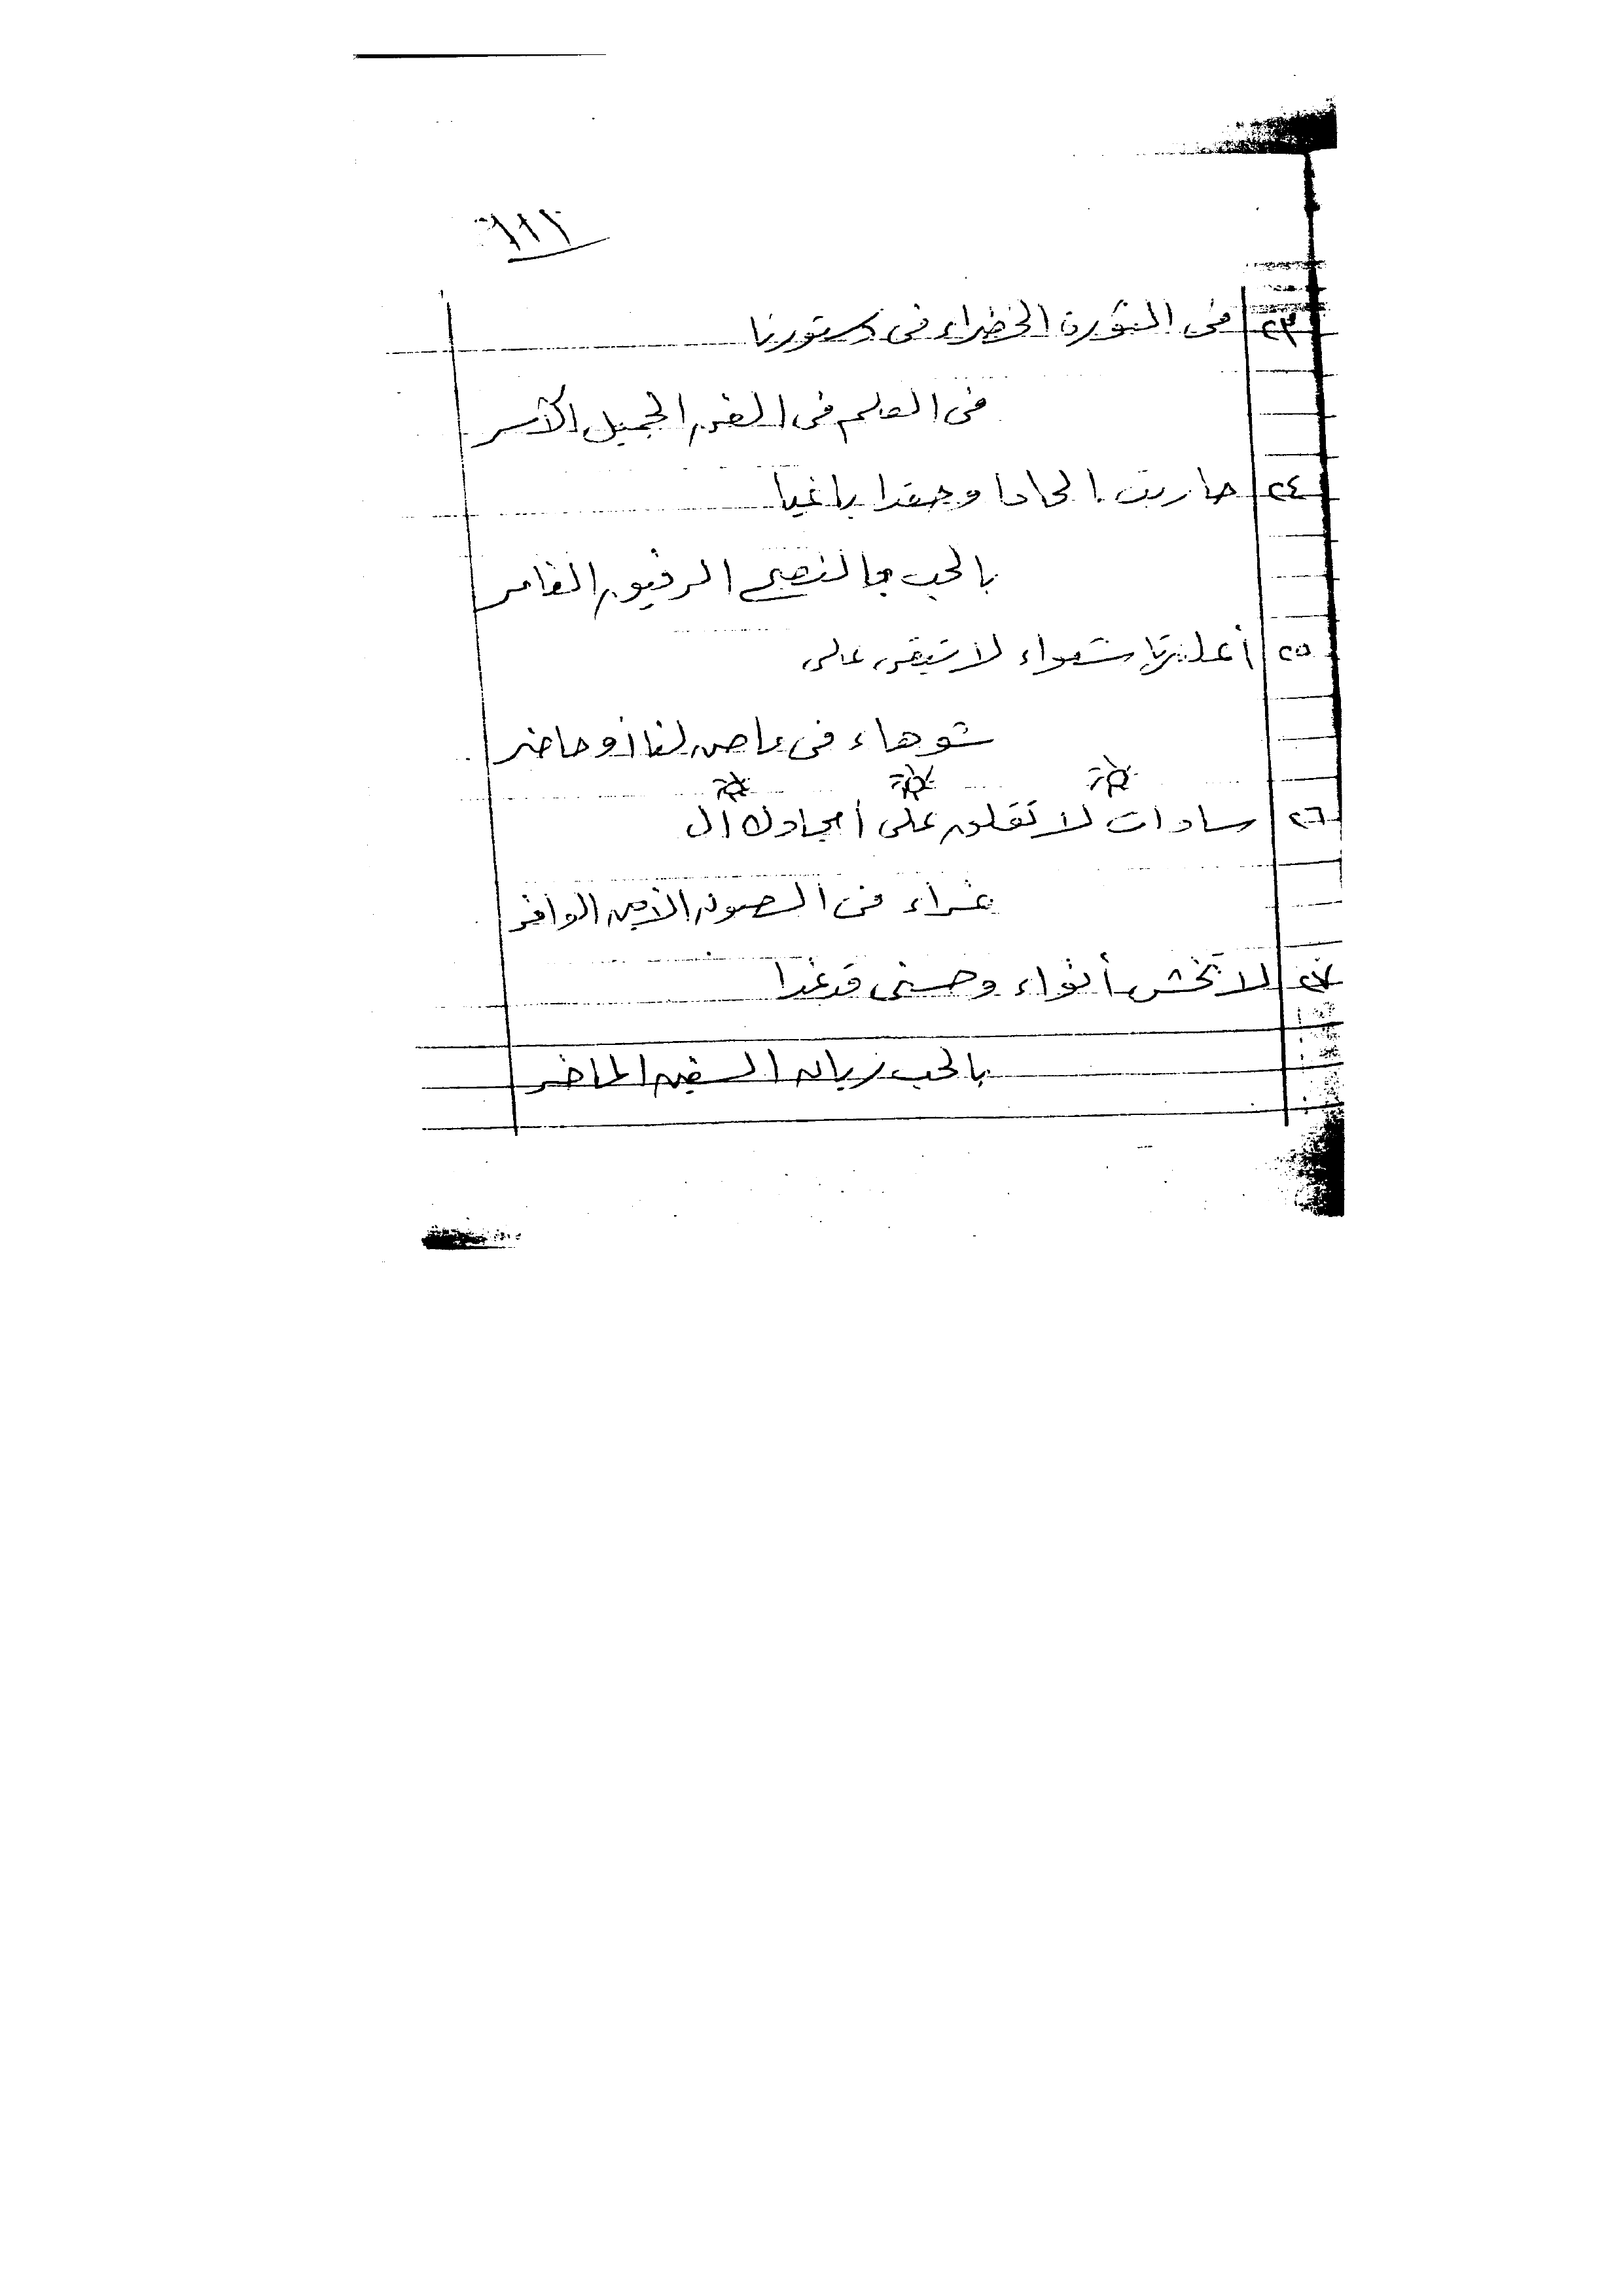 ٢٣ فى الثورة الخضراء فى دستورنا
فى العلم فى الفن الجميل الآسر
٢٤ حاربت إلحادا وحقدا باغيا
بالحب والنصح الرفيق الغامر
٢٥ أعلنتها شعواء لا تبقى على
شوهاء فى ماض لنا أو حاضر
٢٦ سادات لا تقلق على أمجادك ال
غراء فى الصون الأمين الوافر
٢٧ لا تخش أنواء وحسنى قد غدا
بالحب ربان السفين الماخر